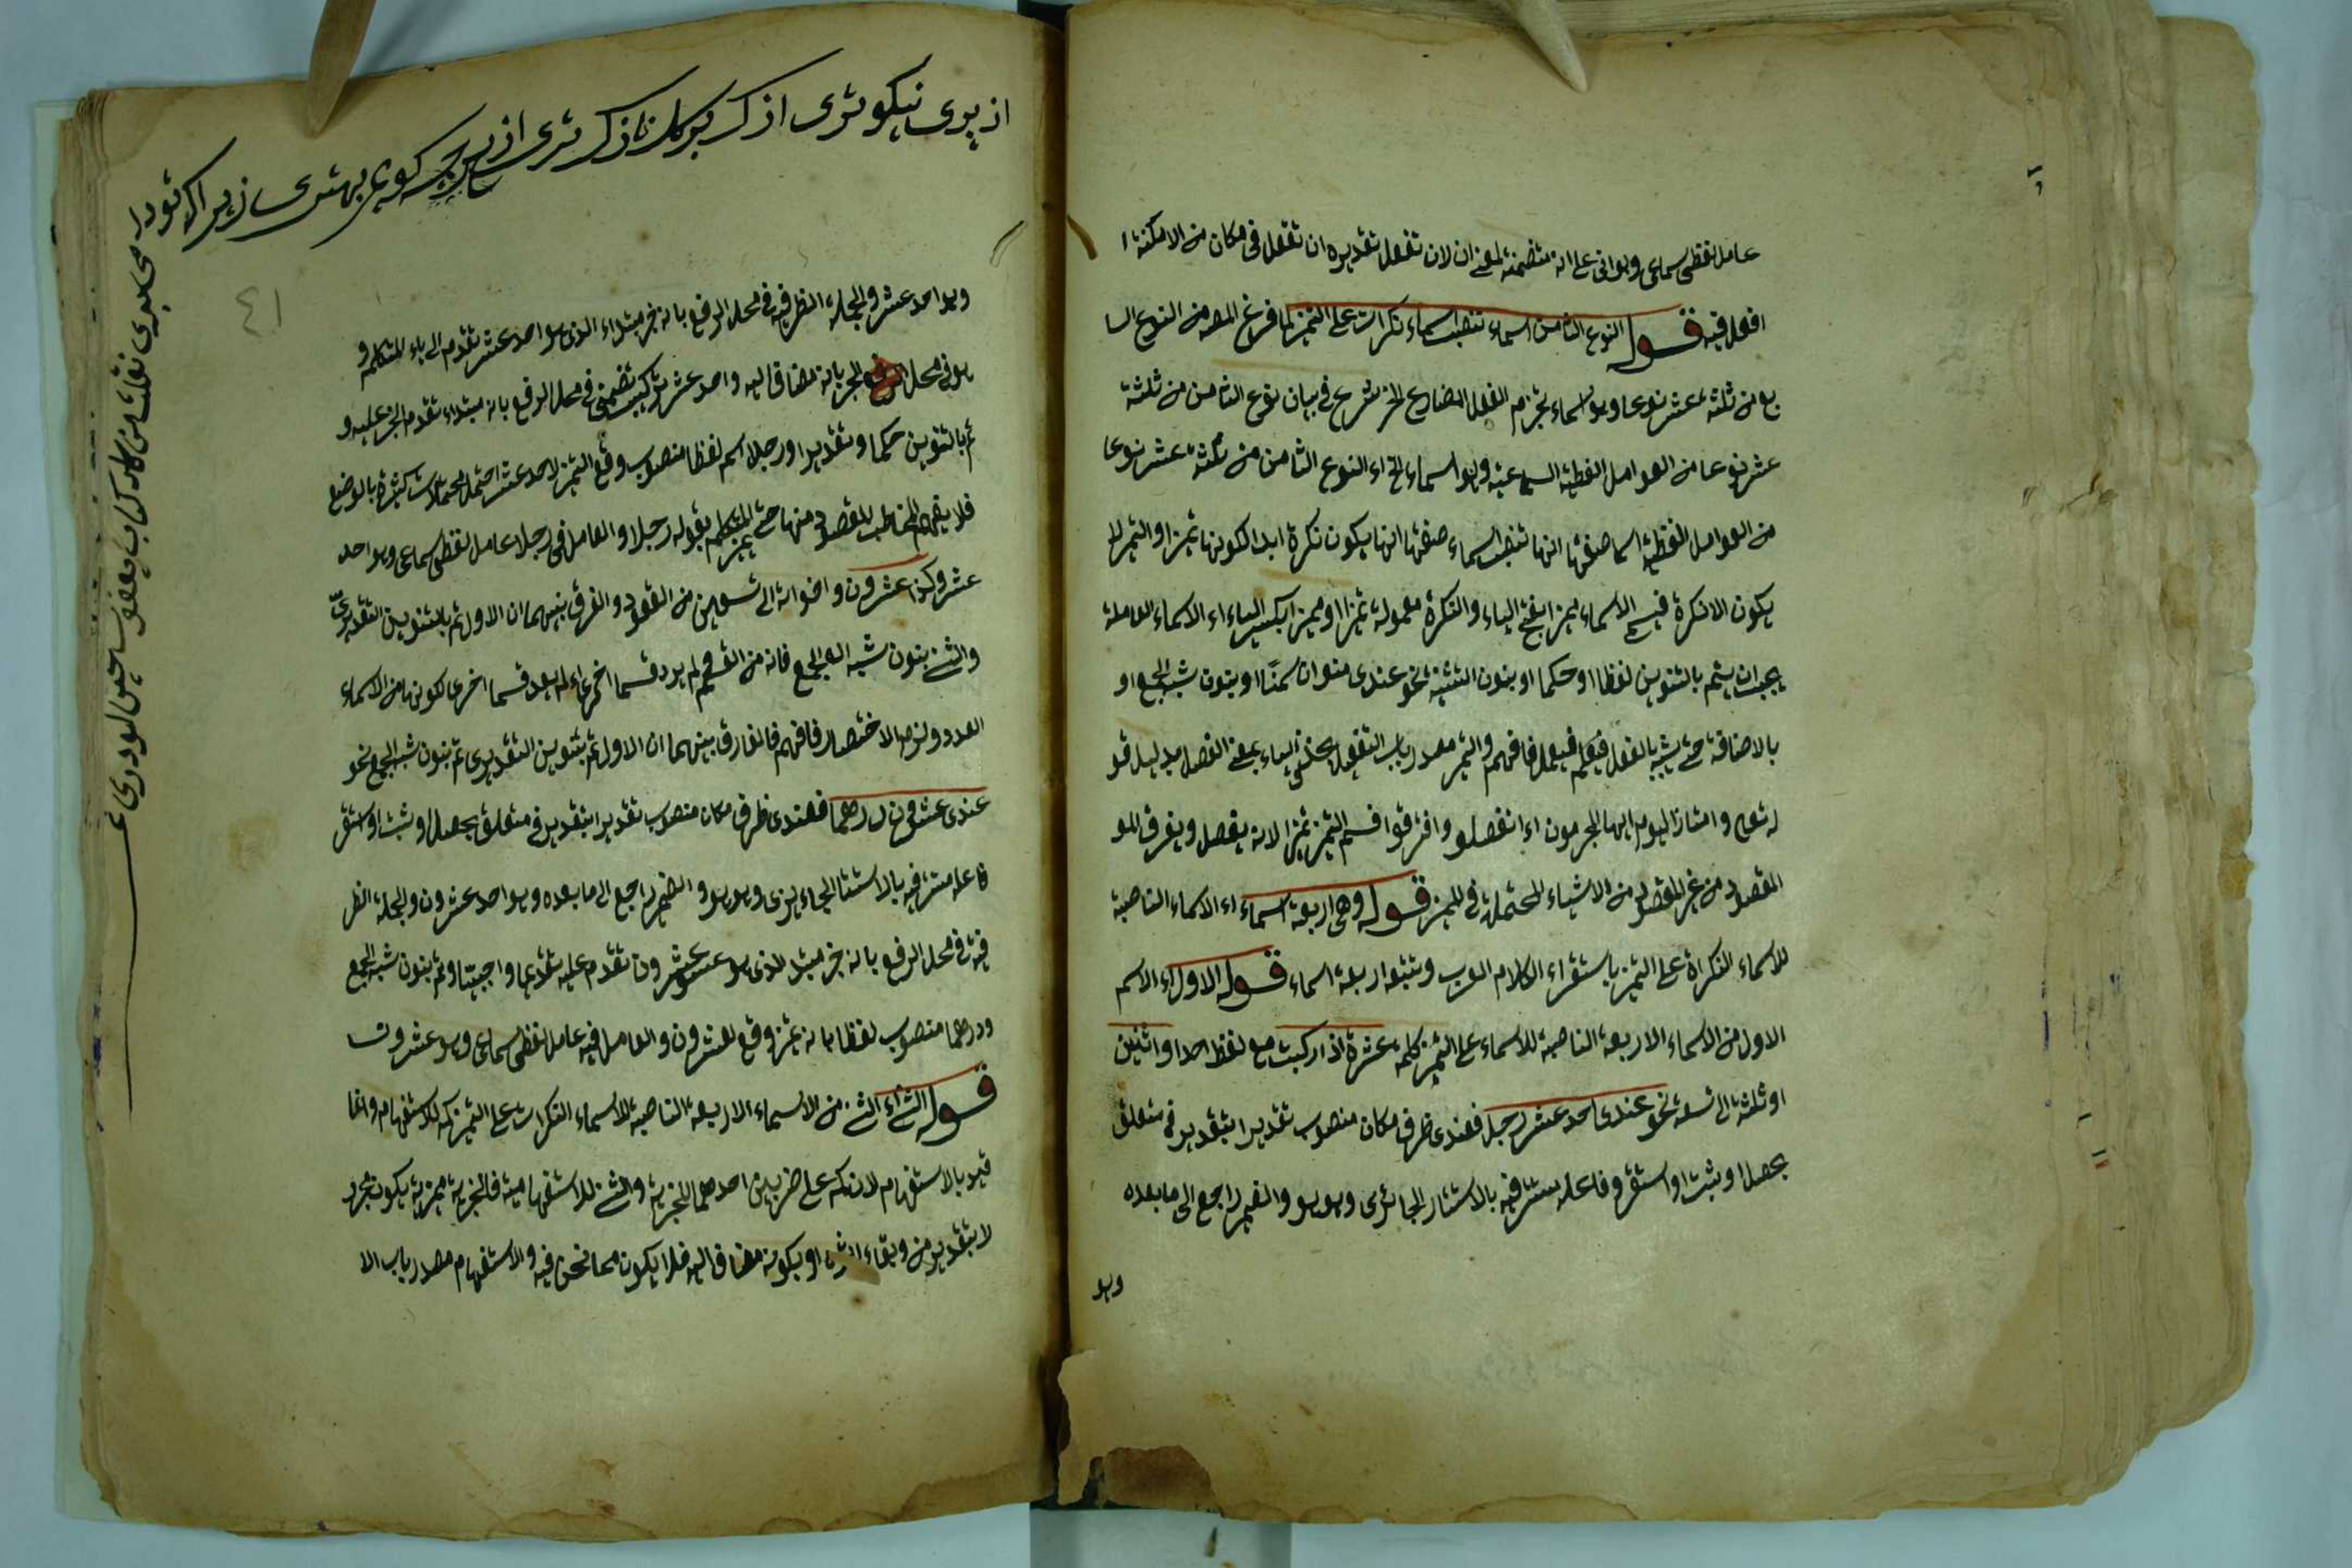 عامل لفظى سماعى وهو انى على انه متضمنة لمعنى ان لان تفعل تقديره ان تفعل فى مكان من الامكنة ا
افعل فيه قوله النوع الثامن اسماء تنصب اسماء نكرات على التميز لما فرغ المصه من النوع السا
بع من ثلثة عشر نوعا وهو اسماء تجزم الفعل المضارع الخ شرع فى بيان نوع الثامن من ثلثة
عشر نوعا من العوامل الفظية السماعية وهو اسماء الخ اء النوع الثامن من ثلثة عشر نوعا
من العوامل الفظية اسما صفتها انها تنصب اسماء صفتها انها يكون نكرة ابدا لكونها تميزا والتميز لا
يكون الا نكرة فيسمى الاسماء مميزا بفتح الياء والنكرة معمولة تميزا او مميزا بكسر الياء اء الاسماء العاملة
يجب ان يتم بالتنوين لفظا او حكما او بنون التثنية نحو عندى منوان سمنًا او بنون شبه الجمع او
بالاضافة حتى يشبه بالفعل فيعمل فافهم والتميز مصدر باب التفعيل بحذف الياء بمعنى الفصل بدليل قو
له تعالى وامتازا اليوم ايها المجرمون اء انفصلو وافترقوا فسمى التميز تميزا لانه يفصل ويفرق المو
المقصود من غير المقصود من الاشياء المحتملة فى المميز قوله وهى اربعة اسماء اء الاسماء الناصبة
للاسماء النكراة على التميز باستقراء الكلام العرب وتتبعه اربعة اسماء قوله الاول اء الاسم
الاول من الاسماء الاربعة الناصبة للاسماء على التميز كلمة عشرة اذا ركبت مع لفظ احد او اثنين
او ثلثة الى تسعة نحو عندى احد عشر رجلا فعندى ظرف مكان منصوب تقديرا بتقدير فى متعلق
بحصل او ثبت او استقر وفاعله مستتر فيه بالاستتار الجائزى وهو هو والضمير راجع الى ما بعده
وهو
از پرى نيكو ترى از برك كل نازك ترى از هرچه كويم بهترى زيراكه تو در
وهو احد عشر والجملة الظرفية فى محل الرفع بانه خبر مبتداء الذى هو احد عشر تقدم الى ياء المتكلم و
هو فى محل الجر بانه مضاف اليه واحد عشر تركيب تضمنى فى محل الرفع بانه مبتداء تقدم الخبر عليه و
تم بالتنوين حكما وتقديرا ورجلا اسم لفظا منصوب وقع التميز لاحد عشر احتمل محتملات كثيرة بالوضع
فلا يفهم المخاطب المقصود منها حتى يميز المتكلم بقوله رجلا والعامل فى رجلا عامل لفظى سماعى وهو احد
عشر وكذا عشرون واخواته الى تسعين من العقود والفرق بينهما ان الاول تم بالتنوين التقديرى
والثانى بنون شبه الجمع فانه من القسم لم يرد قسما اخر اء لم يعد قسما اخر لكونها من الاسماء
العدد ولزم الاختصار فافهم فالفارق بينهما ان الاول تم بتنوين التقديرى ثم بنون شبه الجمع نحو
عندى عشرون درهما فعندى ظرف مكان منصوب تقديرا بتقدير فى متعلق بحصل او ثبت او استقر
فاعله مستتر فيه بالاستتا الجاء يزى وهو هو والضمير راجع الى ما بعده وهو احد عشرون والجملة الظر
فية فى محل الرفع بانه خبر مبتدا الذى هو عشرون تقدم عليه تقدما واجبيتا وتم بنون شبه الجمع
ودرهما منصوب لفظا بانه تميز وقع لعشرون والعامل فيه عامل لفظى سماعى وهو عشرون
قوله الثانى اء الثانى من الاسماء الاربعة الناصبة لاسماء النكرات على التميز كم للاستفهام وانما
قيد بالاستفهام لان كم على ضربين احدهما الخبرية والثانى للاستفهامية فالخبرية مميزة يكون مجرور
لا بتقدير من وبقاء اثره او يكونه مضافا اليه فلا يكون مما نحن فيه والاستفهام مصدر باب الا
٤١